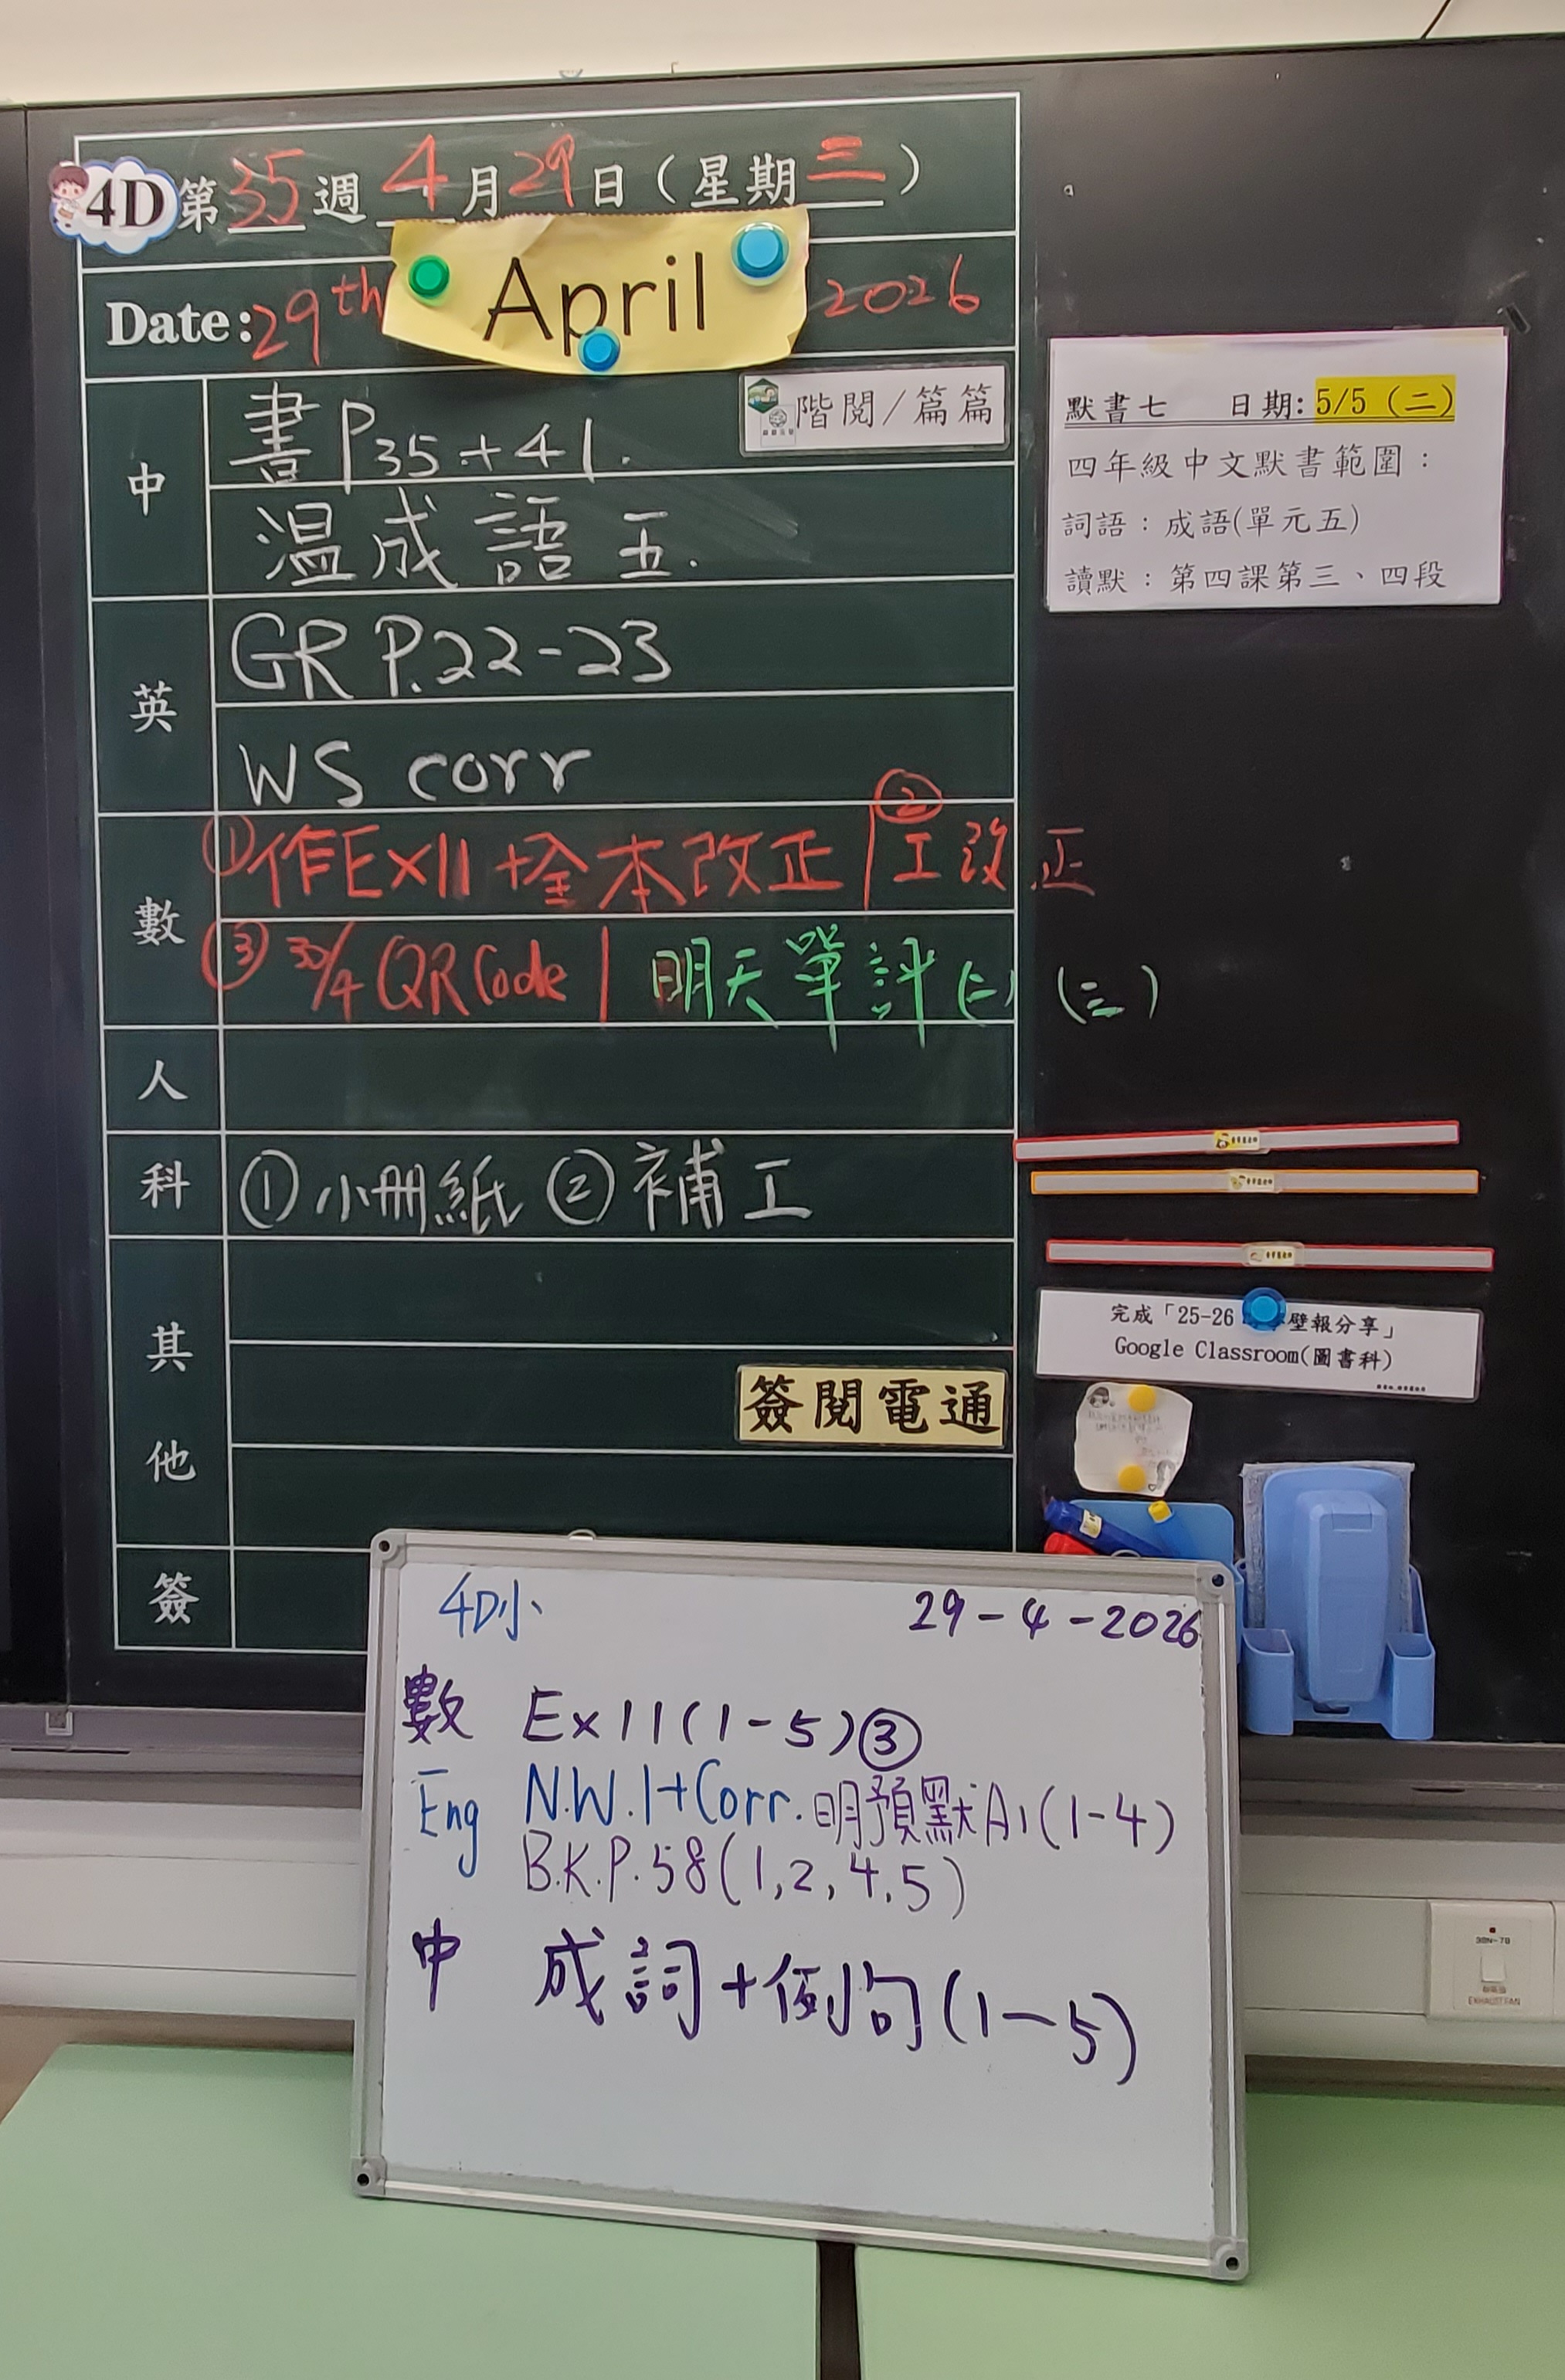 4D 第35週 4月29日(星期三)
Date: 29th April 2026
中
書P35+41.
階閱/篇篇
温成語五.
英
GR P.22-23
WS corr
數
①作Ex11+全本改正 | ②工改正
③30/4 QR Code | 明天單評(二)(三)
人
科
①小冊紙 ②補工
其他
簽閱電通
簽
默書七 日期: 5/5 (二)
四年級中文默書範圍:
詞語:成語(單元五)
讀默:第四課第三、四段
完成「25-26 壁報分享」
Google Classroom(圖書科)
4D小 29-4-2026
數 Ex11(1-5)③
Eng N.W.1+Corr. 明預默A1(1-4)
B.K.P.58(1,2,4,5)
中 成詞+例句(1-5)
EXHAUST FAN